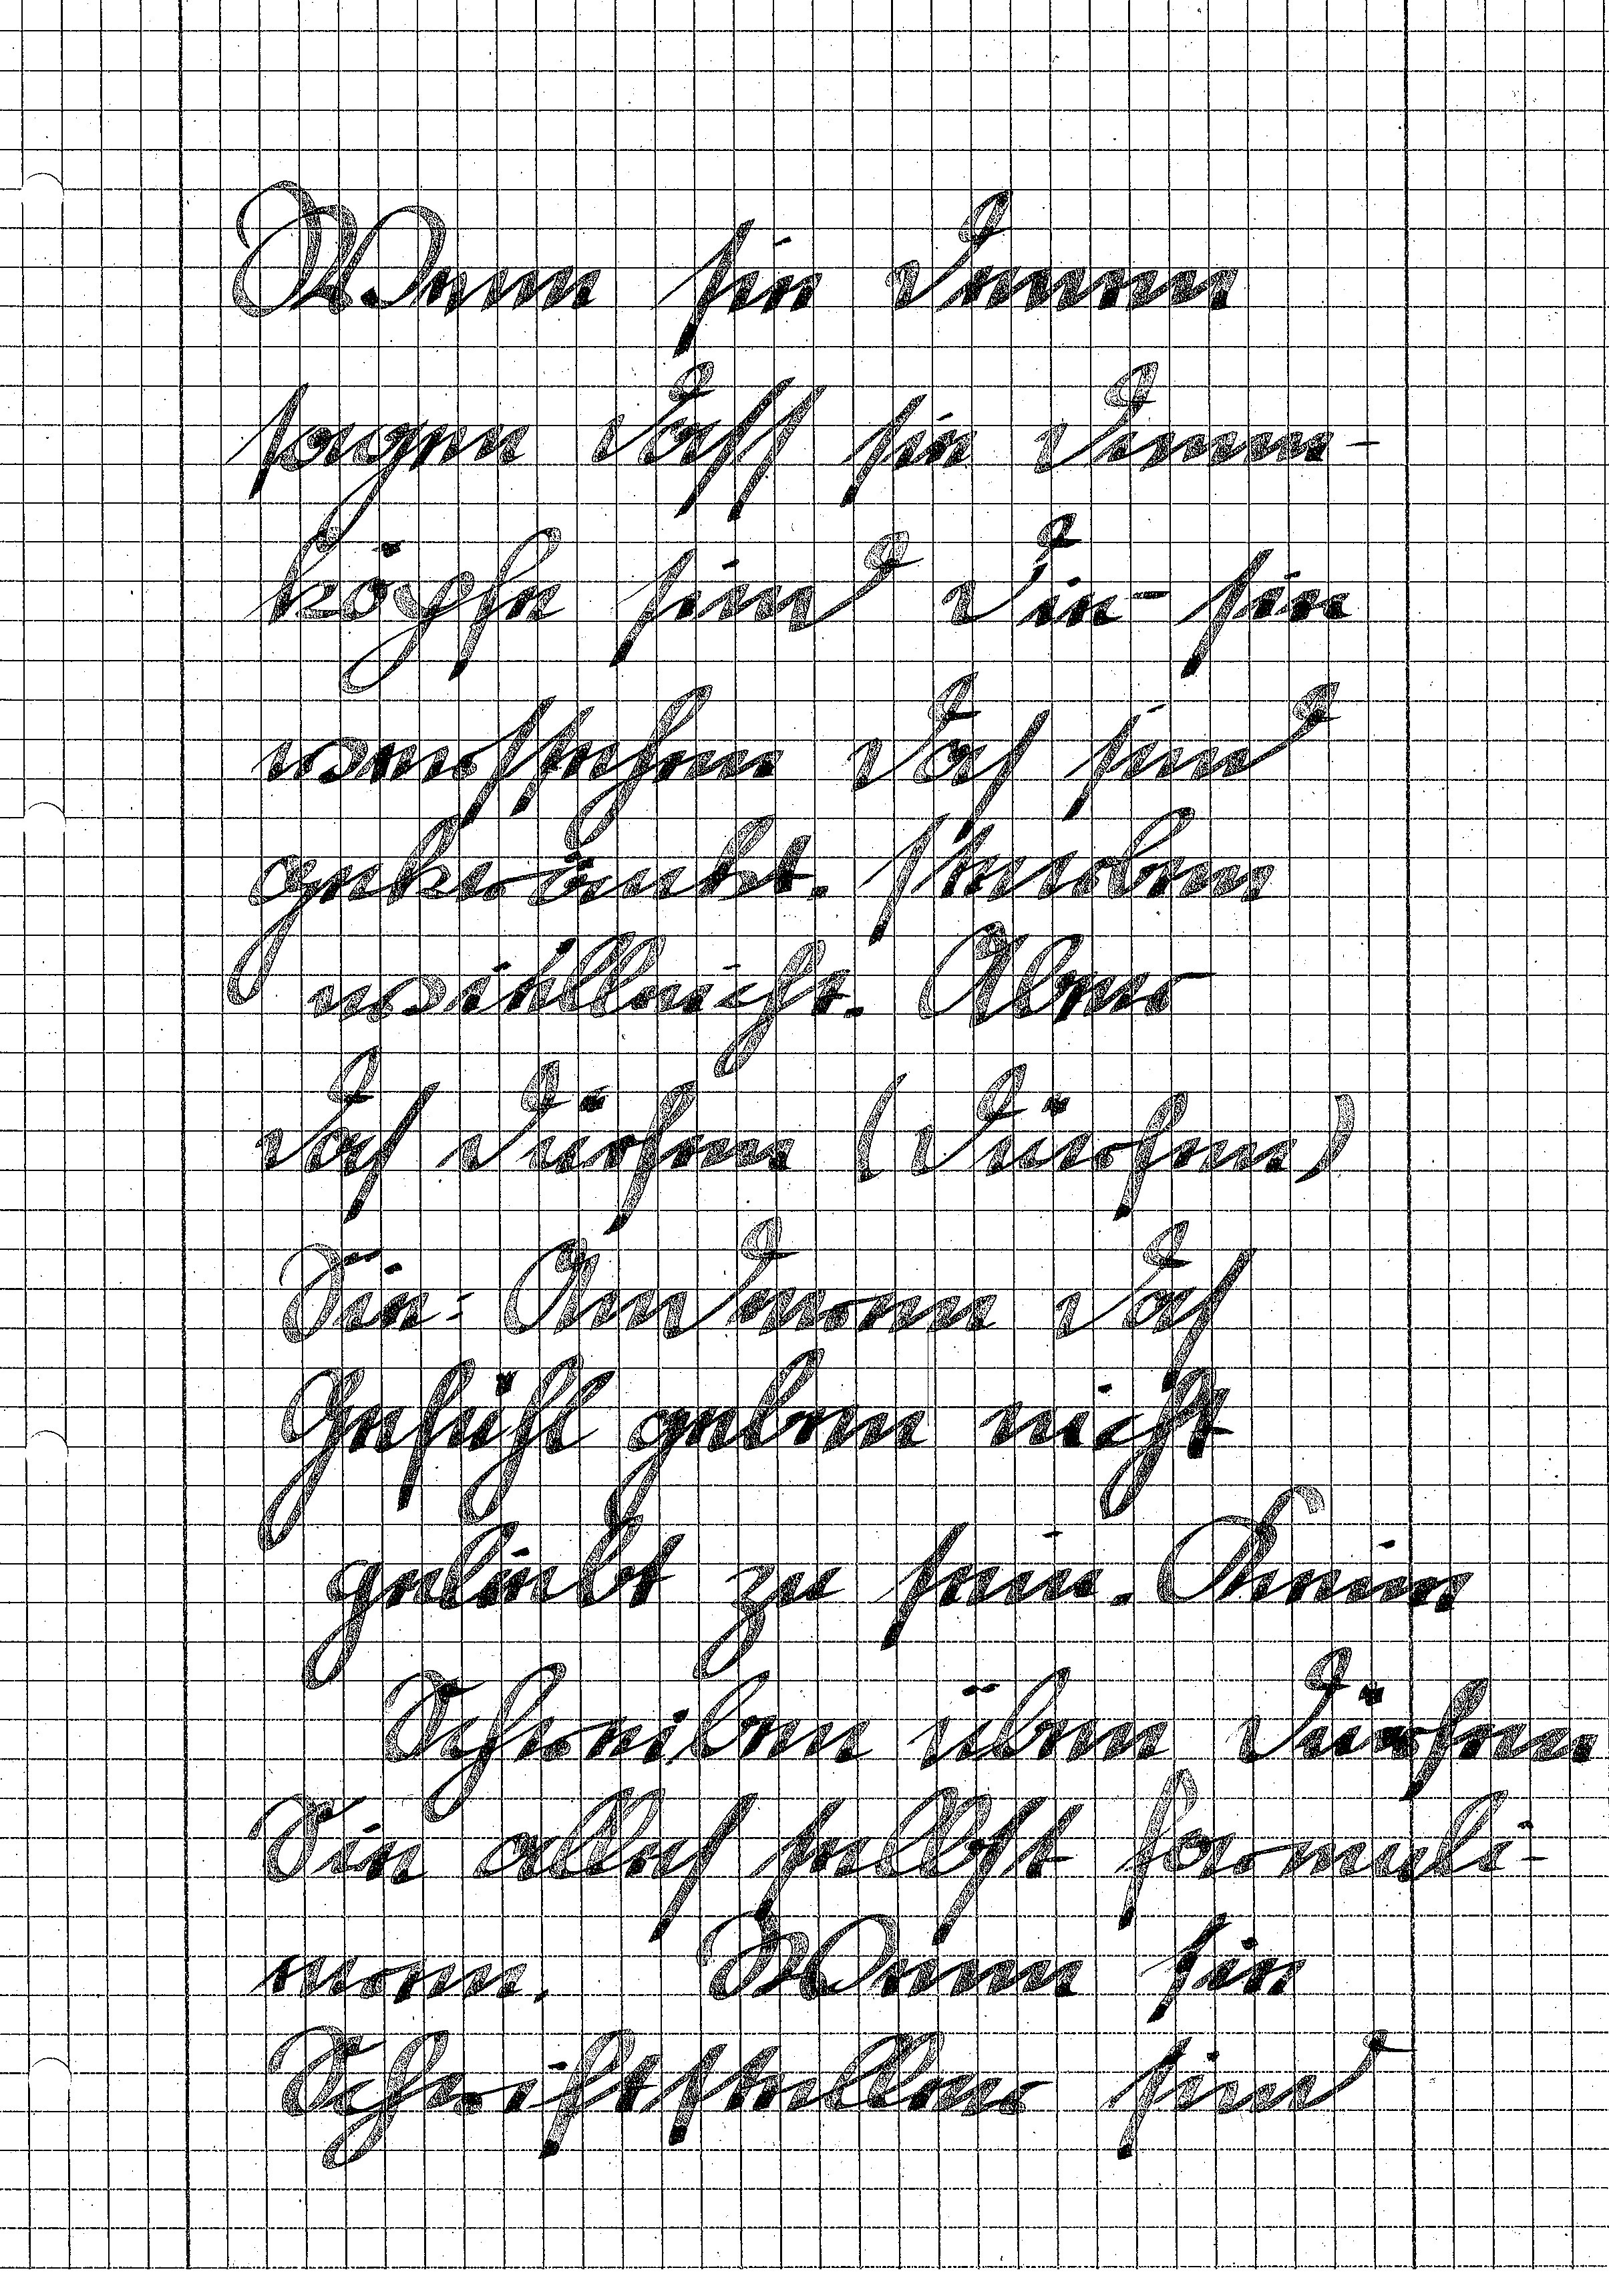 Wenn sie denen
sagen dass sie dumm-
köpfe sind die-sie
verstehen das sind
gekränkt. sterben
vielleicht. Aber
das dürfen (dürfen)
Sie: Anderen das
Gefühl geben nicht
geliebt zu sein. Beim
Schreiben üben dürfen
Sie alles selbst formuli-
eren. Wenn sie
Schriftsteller sind